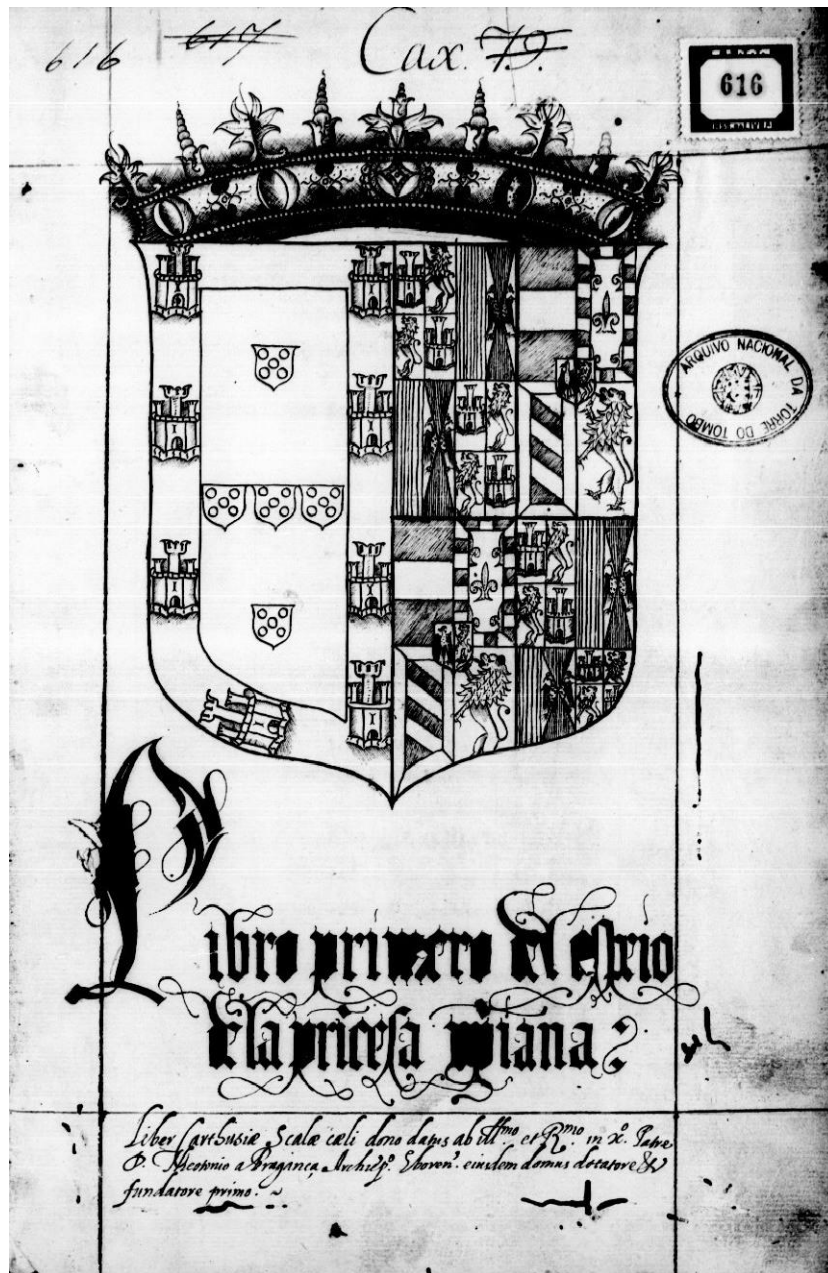 616 617 Cax. 79.
616
ARQUIVO NACIONAL DA TORRE DO TOMBO
Libro primero del espeio
de la pricesa xpiana
Liber Carthusiæ Scalæ cæli dono datus ab Ill.mo et R.mo in x.º Patre
D. Theotonio a Bragança, Archiep.º Eboren.' eiusdem domus dotatore &
fundatore primo. ~